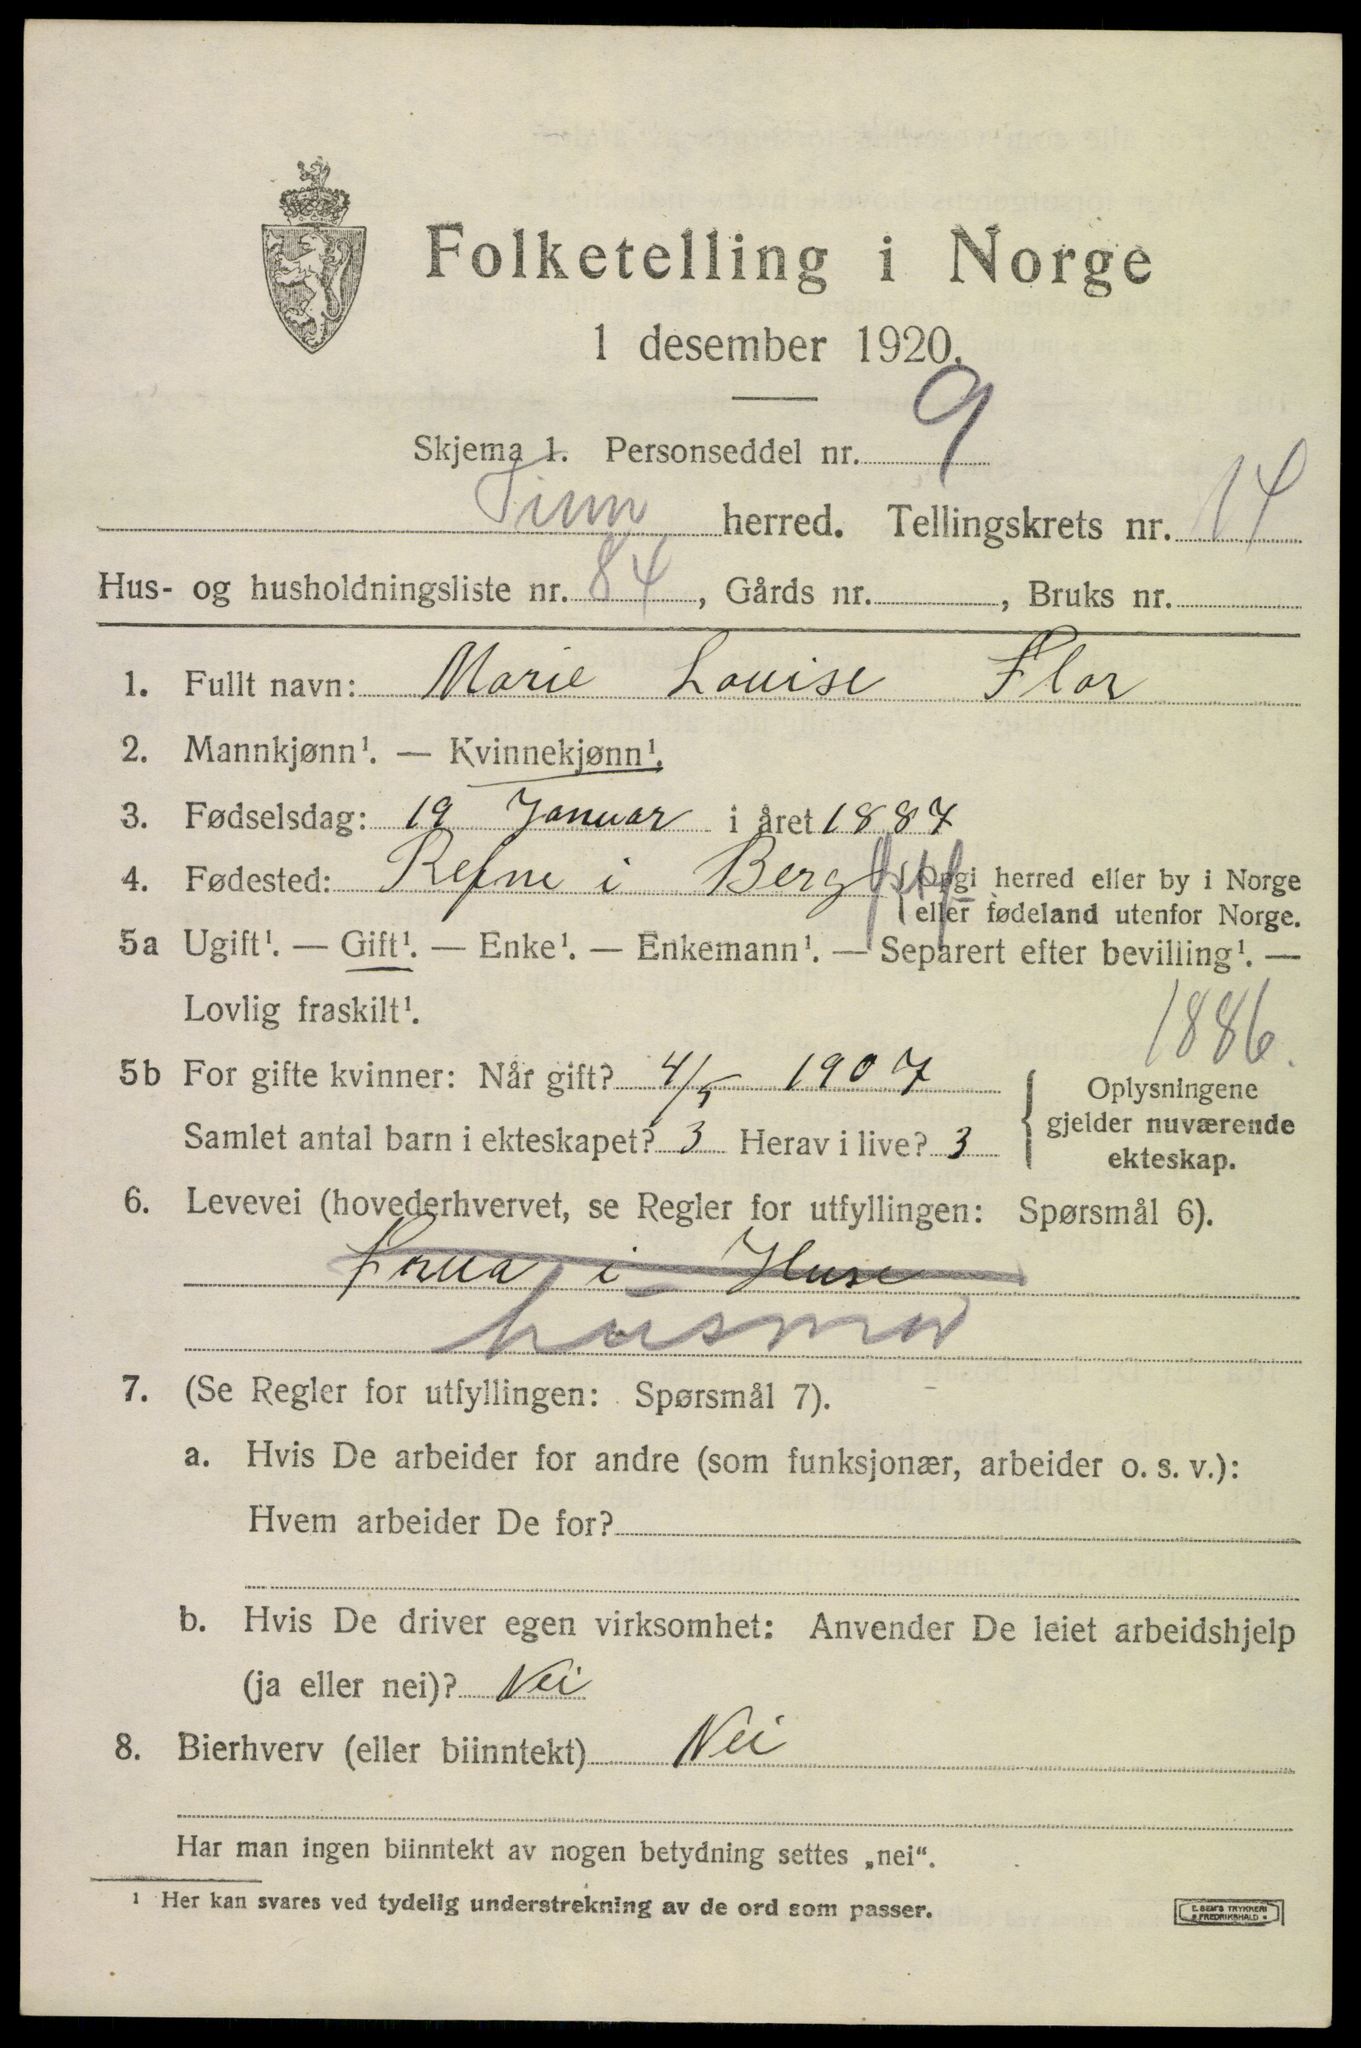 Folketelling i Norge
1 desember 1920.
Skjema 1. Personseddel nr. 9
Tinn herred. Tellingskrets nr. 14
Hus- og husholdningsliste nr. 84, Gårds nr. , Bruks nr.
1. Fullt navn: Marie Louise Flor
2. Mannkjønn¹. — Kvinnekjønn¹.
3. Fødselsdag: 19 Januar i året 1887
4. Fødested: Refne i Berg {Opgi herred eller by i Norge
eller fødeland utenfor Norge.
5a Ugift¹. — Gift¹. — Enke¹. — Enkemann¹. — Separert efter bevilling¹. —
Lovlig fraskilt¹.
1886.
5b For gifte kvinner: Når gift? 4/5 1907
Samlet antal barn i ekteskapet? 3 Herav i live? 3
{Oplysningene
gjelder nuværende
ekteskap.
6. Levevei (hovederhvervet, se Regler for utfyllingen: Spørsmål 6).
Frua i Huse
husmor
7. (Se Regler for utfyllingen: Spørsmål 7).
a. Hvis De arbeider for andre (som funksjonær, arbeider o. s. v.):
Hvem arbeider De for?
b. Hvis De driver egen virksomhet: Anvender De leiet arbeidshjelp
(ja eller nei)? Nei
8. Bierhverv (eller biinntekt) Nei
Har man ingen biinntekt av nogen betydning settes „nei“.
¹ Her kan svares ved tydelig understrekning av de ord som passer.
E. SEM'S TRYKKERI
FREDRIKSHALD